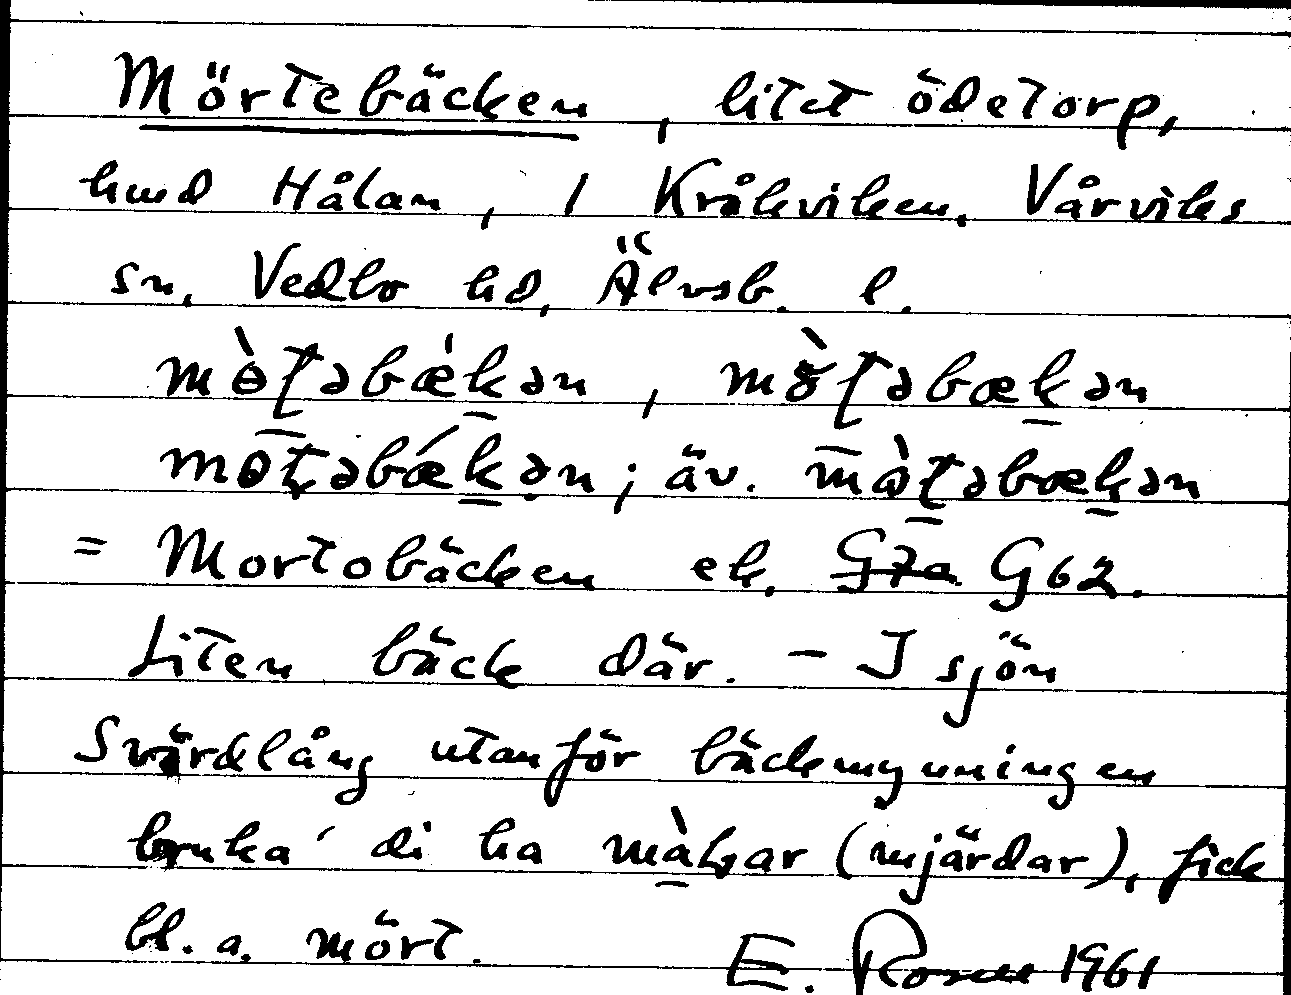 Mörtebäcken, litet ödetorp,
hmd Hålan, i Kråkviken, Vårviks
sn, Vedbo hd, Älvsb. l.
mө̀ʈəbǽkən, mò̈ʈəbækən
mөʈəbǽkən; äv. màʈəbækən
= Mortobäcken ek. G62.
Liten bäck där. – I sjön
Svärdlång utanför bäckmynningen
bruka' di ha (mjärdar), fick
bl. a. mört. E. Rosell 1961